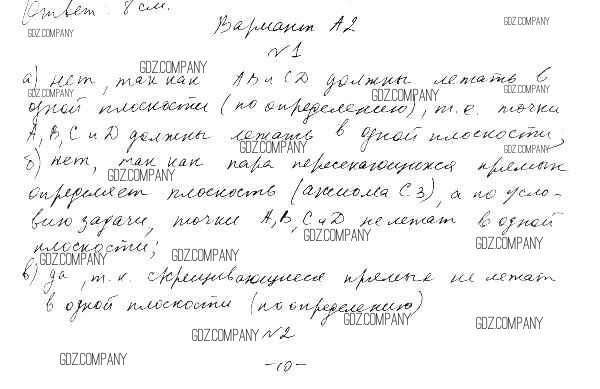 Ответ: 8 см.
GDZ.COMPANY
Вариант А2
GDZ.COMPANY
№1
GDZ.COMPANY
а) нет, так как АВ и CD должны лежать в
GDZ.COMPANY GDZ.COMPANY GDZ.COMPANY
одной плоскости (по определению), т.е. точки
А, В, С и D должны лежать в одной плоскости;
GDZ.COMPANY GDZ.COMPANY
б) нет, так как пара пересекающихся прямых
GDZ.COMPANY
определяет плоскость (аксиома С3), а по усло-
вию задачи, точки А, В, С и D не лежат в одной
GDZ.COMPANY GDZ.COMPANY
плоскости;
GDZ.COMPANY GDZ.COMPANY
в) да, т.к. скрещивающиеся прямые не лежат
в одной плоскости (по определению)
GDZ.COMPANY GDZ.COMPANY
GDZ.COMPANY №2
GDZ.COMPANY
-10-